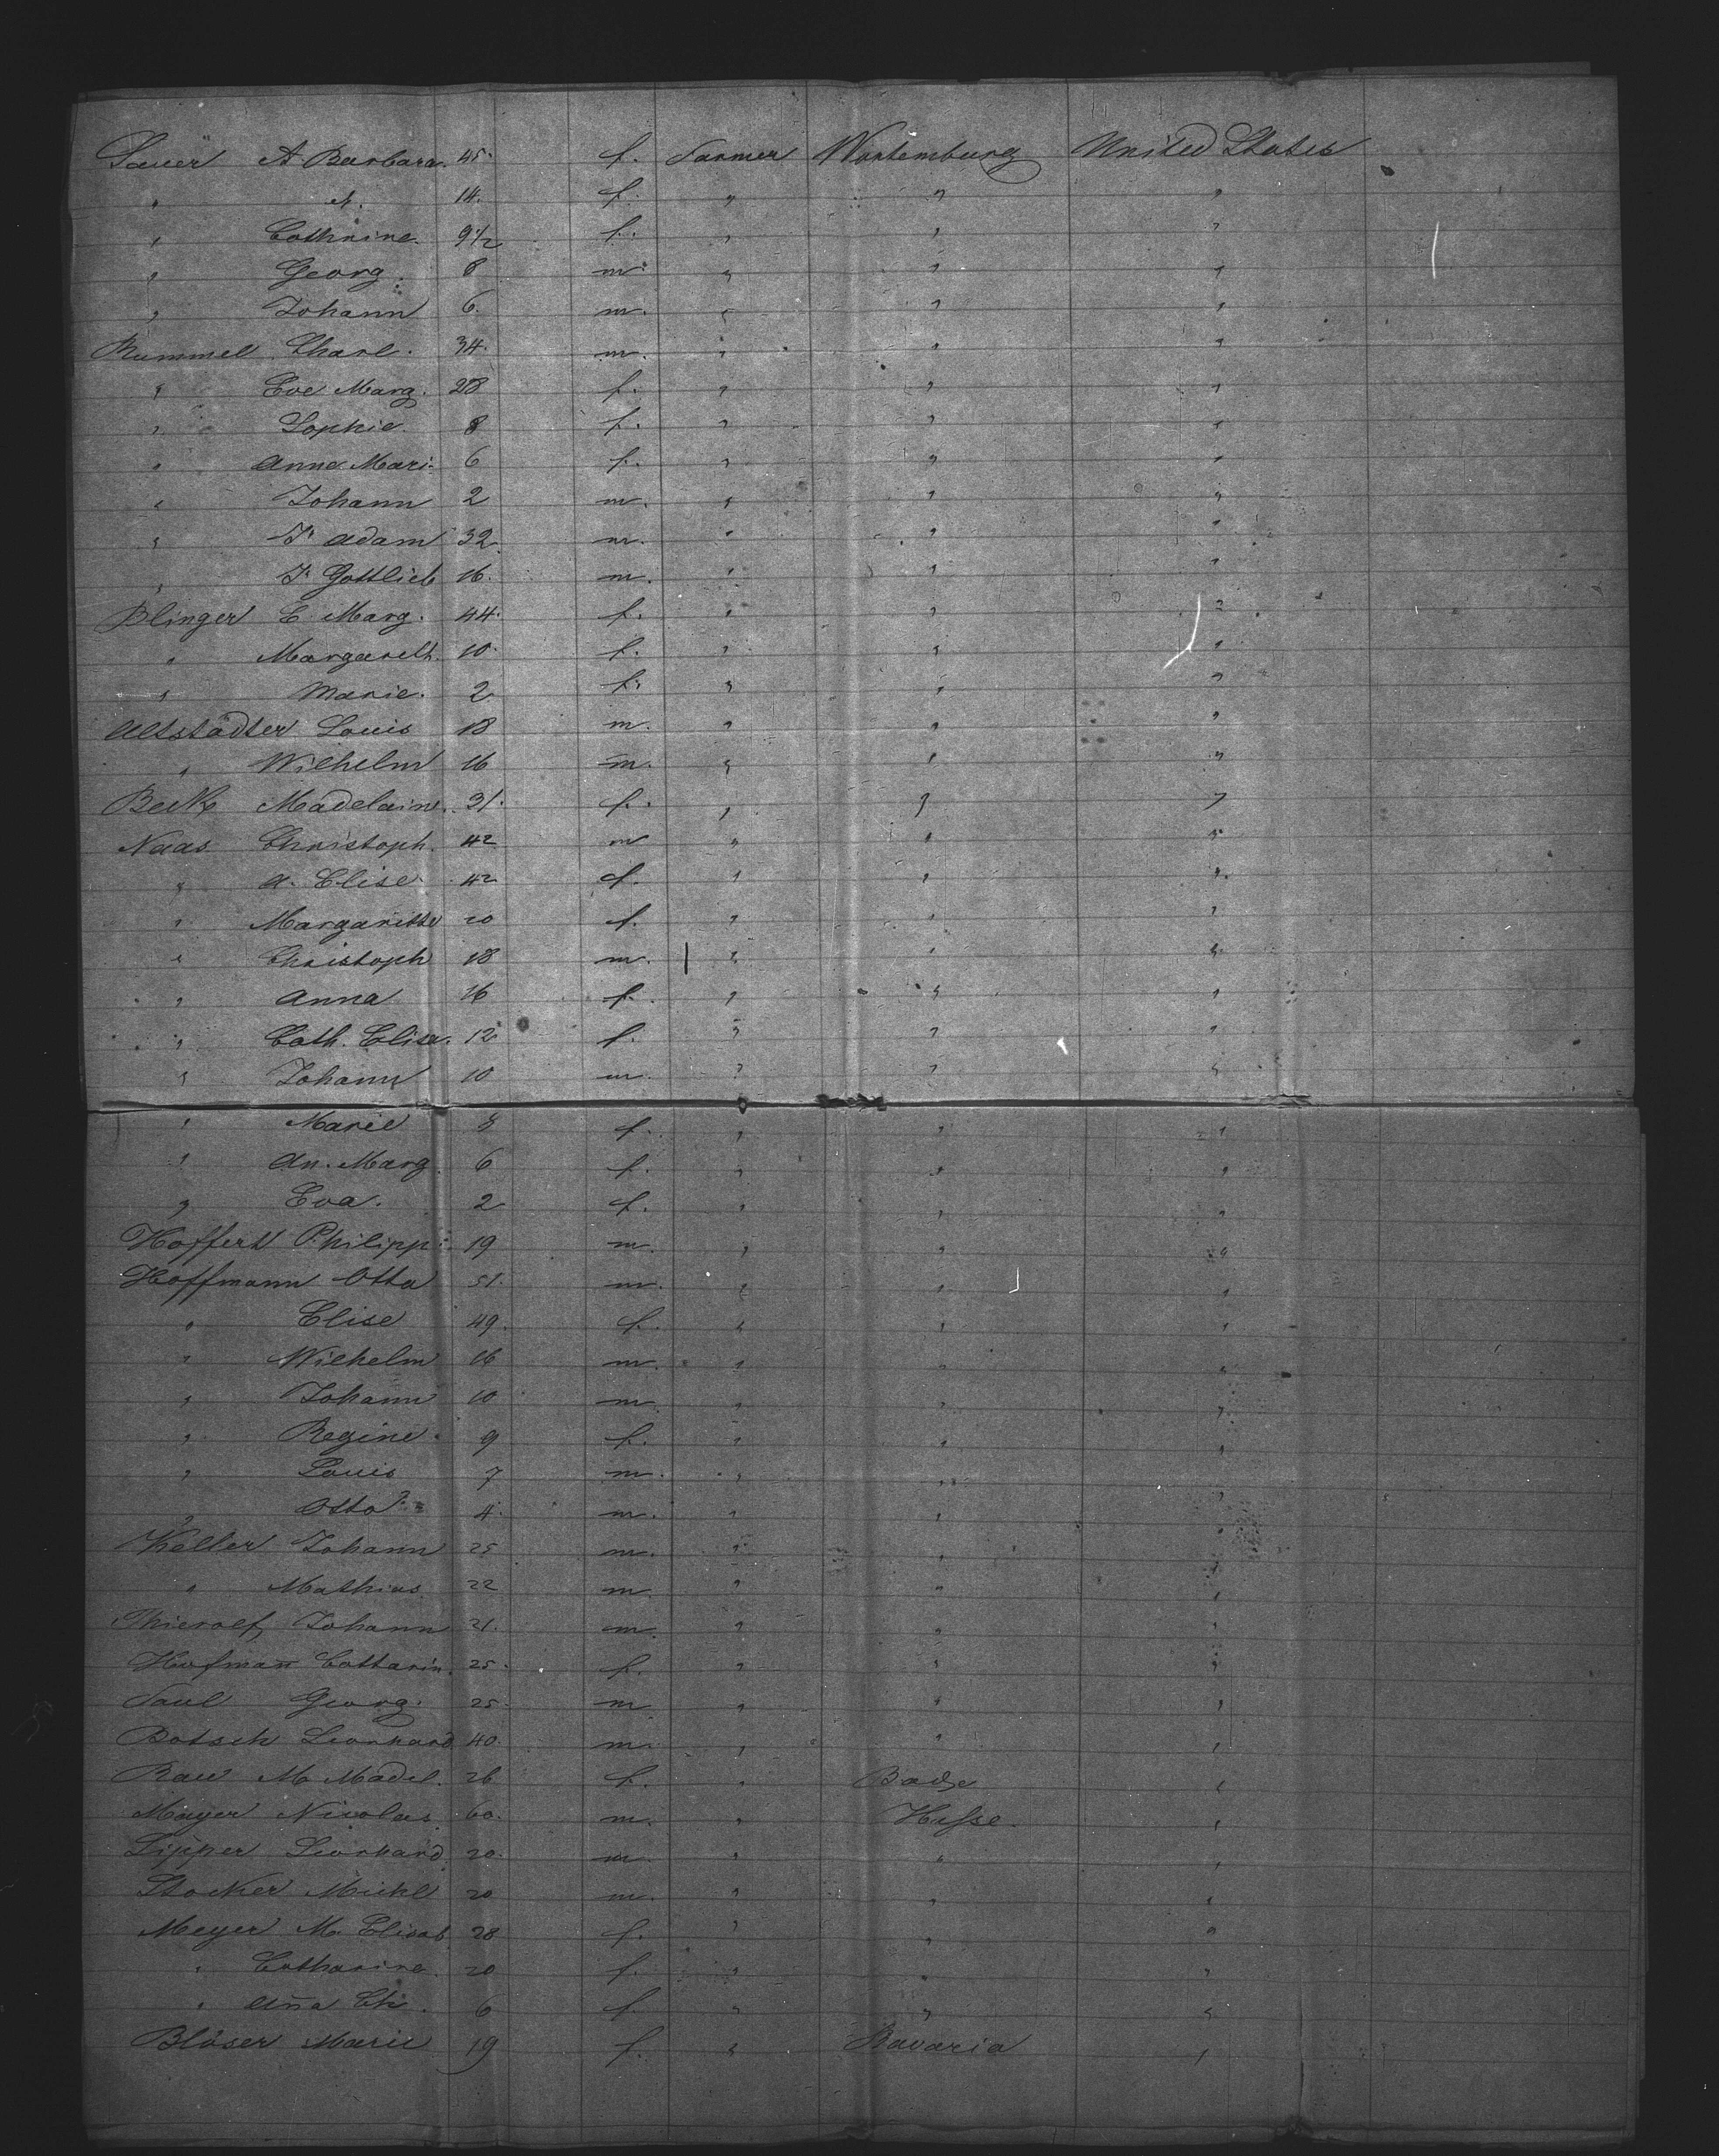 Sauer A Barbara. 45. f. Farmer Wurtemburg United States
" A. 14. f. " " "
" Cathrine. 9 1/2 f. " " "
" Georg. 8 m. " " "
" Johann 6. m. " " "
Rummel Charl. 34. m. " " "
" Eve Marg. 28 f. " " "
" Sophie. 8 f. " " "
" Anna Mari. 6 f. " " "
" Johann 2 m. " " "
" J. Adam 32. m. " " "
" J. Gottlieb 16. m. " " "
Blinger E. Marg. 44. f. " " "
" Margareth. 10. f. " " "
" Marie. 2 f. " " "
Altstädter Louis 18 m. " " "
" Wilhelm 16 m. " " "
Beck Madelaine. 31. f. " " "
Naas Christoph. 42 m " " "
" A. Elise. 42 f. " " "
" Margarithe 20 f. " " "
" Christoph 18 m. " " "
" Anna 16 f. " " "
" Cath. Elise. 12 f. " " "
" Johann 10 m. " " "
" Marie f. " " "
" An. Marg. 6 f. " " "
" Eva. 2 f. " " "
Hoffert Philipp. 19 m. " " "
Hoffmann Otto 51. m. " " "
" Elise 49. f. " " "
" Wilhelm 16 m. " " "
" Johann 10 m. " " "
" Regine. 9 f. " " "
" Louis 7 m. " " "
" Otto 4. m. " " "
Keller Johann 25 m. " " "
" Mathias 22 m. " " "
Thierolf, Johann 21. m. " " "
Hofmann Cattarin. 25. f. " " "
Saul Georg. 25. m " " "
Botsch Leonhard 40. m. " " "
Rau M. Madel. 26 f. " Bade "
Mayer Nicolas. 60. m. " Hesse. "
Lipper Leonhard 20. m. " " "
Stocker Michl 20 m. " " "
Meyer M. Elisab. 28 f. " " "
" Catharina. 20 f. " " "
" Ana Ch. 6 f. " " "
Blöser Marie 19 f. " Bavaria "